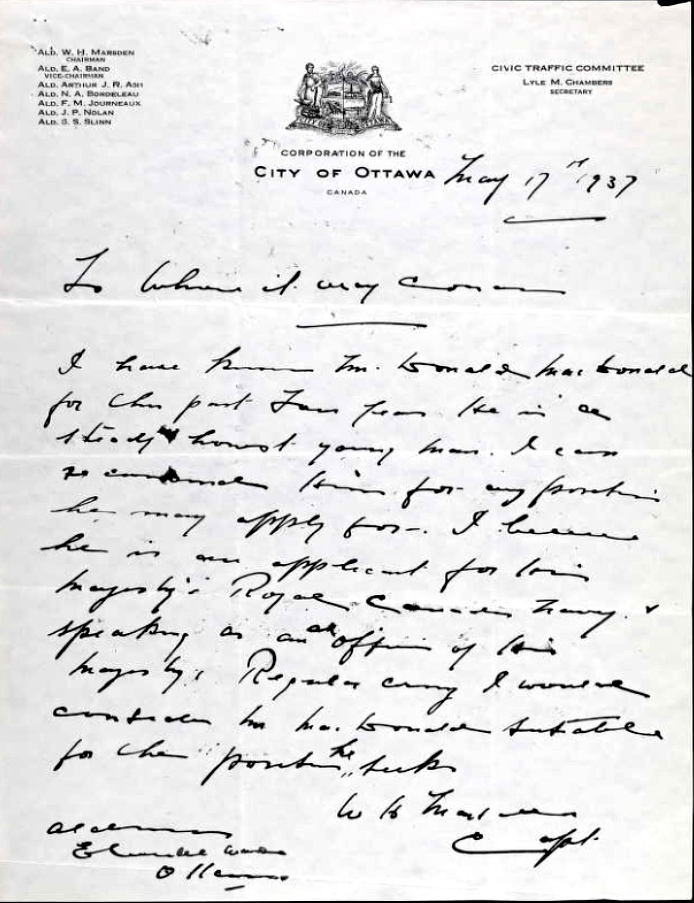 ALD. W. H. MARSDEN
CHAIRMAN
ALD. E. A. BAND
VICE-CHAIRMAN
ALD. ARTHUR J. R. ASH
ALD. N. A. BORDELEAU
ALD. F. M. JOURNEAUX
ALD. J. P. NOLAN
ALD. S. S. SLINN
CIVIC TRAFFIC COMMITTEE
LYLE M. CHAMBERS
SECRETARY
CORPORATION OF THE
CITY OF OTTAWA
CANADA
May 17 1937
To Whom it may Concern
I have known Mr. Donald MacDonald
for the past four years He is a
steady honest young man. I can
recommend him for any position
he may apply for. I believe
he is an applicant for his
majesty's Royal Canadian Navy. &
speaking as an officer of His
majesty's Regular army I would
consider Mr MacDonald suitable
for the position he seeks
W H Marsden
Capt.
Alderman
Ward
Ottawa